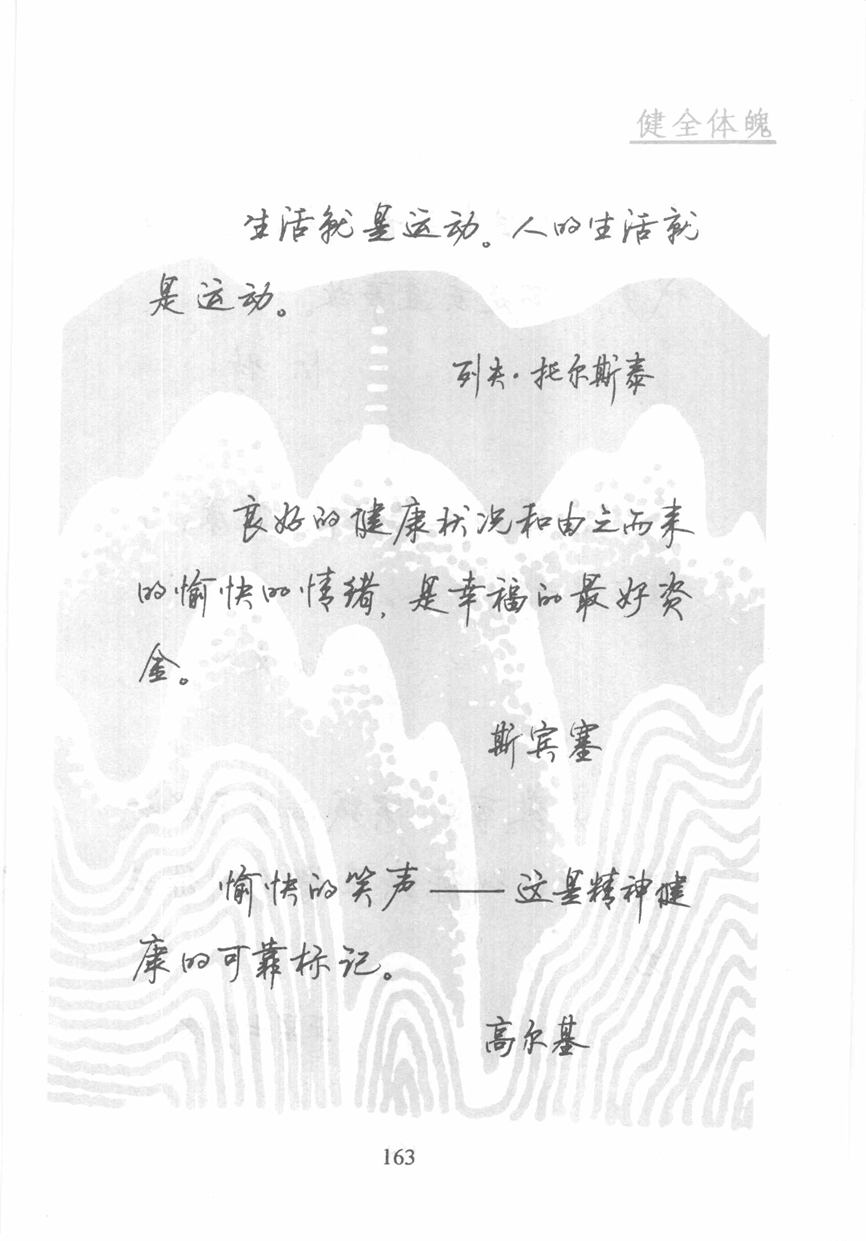 健全体魄
生活就是运动。人的生活就
是运动。
列夫·托尔斯泰
良好的健康状况和由之而来
的愉快的情绪，是幸福的最好资
金。
斯宾塞
愉快的笑声——这是精神健
康的可靠标记。
高尔基
163